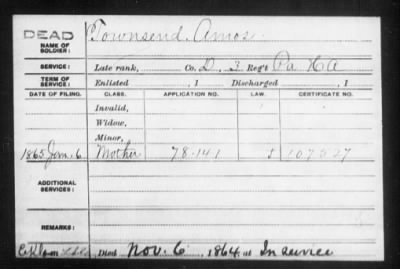 DEAD
NAME OF SOLDIER: Townsend, Amos
SERVICE: Late rank, Co. D, 3 Reg't Pa H A
TERM OF SERVICE: Enlisted , 1 Discharged , 1
DATE OF FILING. CLASS. APPLICATION NO. LAW. CERTIFICATE NO.
Invalid,
Widow,
Minor,
1865 Jan. 6 Mother 78.141 107527
ADDITIONAL SERVICES:
REMARKS:
Died Nov. 6, 1864, at In service